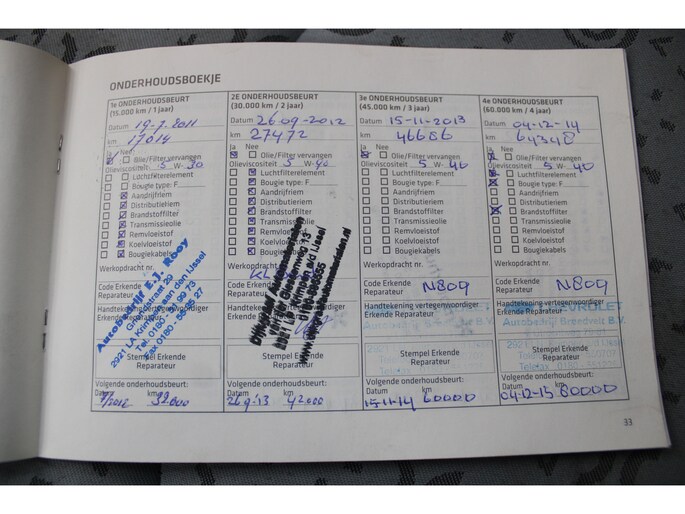 ONDERHOUDSBOEKJE
1e ONDERHOUDSBEURT
(15.000 km / 1 jaar)
Datum 19-7-2011
km 17014
Ja Nee
Olie/Filter vervangen
Olieviscositeit 5 W- 30
Luchtfilterelement
Bougie type: F
Aandrijfriem
Distributieriem
Brandstoffilter
Transmissieolie
Remvloeistof
Koelvloeistof
Bougiekabels
Werkopdracht nr.
Code Erkende
Reparateur
Handtekening
Erkende Reparateur
Autobedrijf E.J. Rooy
2921 LA Krimpen aan den IJssel
Stempel Erkende
Reparateur
Volgende onderhoudsbeurt:
Datum km
7/2012
2E ONDERHOUDSBEURT
(30.000 km / 2 jaar)
Datum 26-09-2012
km 27472
Ja Nee
Olie/Filter vervangen
Olieviscositeit 5 W- 40
Luchtfilterelement
Bougie type: F
Aandrijfriem
Distributieriem
Brandstoffilter
Transmissieolie
Remvloeistof
Koelvloeistof
Bougiekabels
Werkopdracht
Code Erkende
Reparateur
Erkende
2921 LA Krimpen a/d IJssel
Stempel Erkende
Reparateur
Volgende onderhoudsbeurt:
Datum km
26-9-'13 42.000
3e ONDERHOUDSBEURT
(45.000 km / 3 jaar)
Datum 15-11-2013
km 46686
Ja Nee
Olie/Filter vervangen
Olieviscositeit 5 W- 40
Luchtfilterelement
Bougie type: F
Aandrijfriem
Distributieriem
Brandstoffilter
Transmissieolie
Remvloeistof
Koelvloeistof
Bougiekabels
Werkopdracht nr.
Code Erkende
Reparateur N809
Handtekening vertegenwoordiger
Erkende Reparateur
Stempel Erkende
Reparateur
Volgende onderhoudsbeurt:
Datum km
15-11-14 60000
4e ONDERHOUDSBEURT
(60.000 km / 4 jaar)
Datum 04-12-14
km 64348
Ja Nee
Olie/Filter vervangen
Olieviscositeit 5 W- 40
Luchtfilterelement
Bougie type: F
Aandrijfriem
Distributieriem
Brandstoffilter
Transmissieolie
Remvloeistof
Koelvloeistof
Bougiekabels
Werkopdracht nr.
Code Erkende
Reparateur N809
Handtekening vertegenwoordiger
Erkende Reparateur
CHEVROLET
Autobedrijf Breedveld B.V.
Stempel Erkende
Reparateur
Volgende onderhoudsbeurt:
Datum km
04-12-15 80000
33